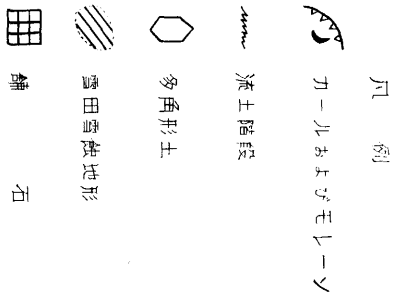 凡例
カールおよびモレーン
流土階段
多角形土
雪田雪蝕地形
舗石